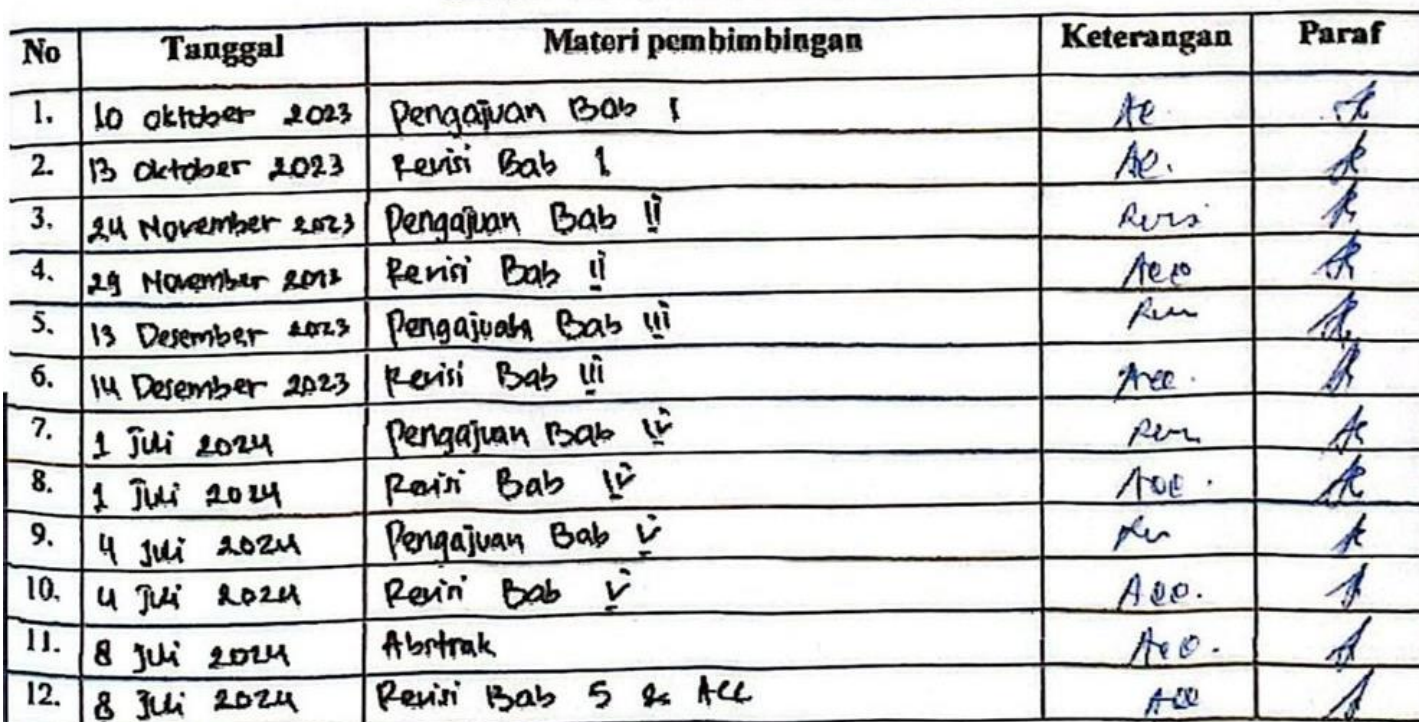 No Tanggal Materi pembimbingan Keterangan Paraf
1. 10 oktober 2023 Pengajuan Bab I
2. 13 Oktober 2023 Revisi Bab 1
3. 24 November 2023 Pengajuan Bab II
4. 29 November Revisi Bab II
5. 13 Desember 2023 Pengajuan Bab III
6. 14 Desember 2023 Revisi Bab III Acc.
7. 1 Juli 2024 Pengajuan Bab IV
8. 1 Juli 2024 Revisi Bab IV Acc.
9. 4 Juli 2024 Pengajuan Bab V
10. 4 Juli 2024 Revisi Bab V Acc.
11. 8 Juli 2024 Abstrak Acc.
12. 8 Juli 2024 Revisi Bab 5 & Acc Acc